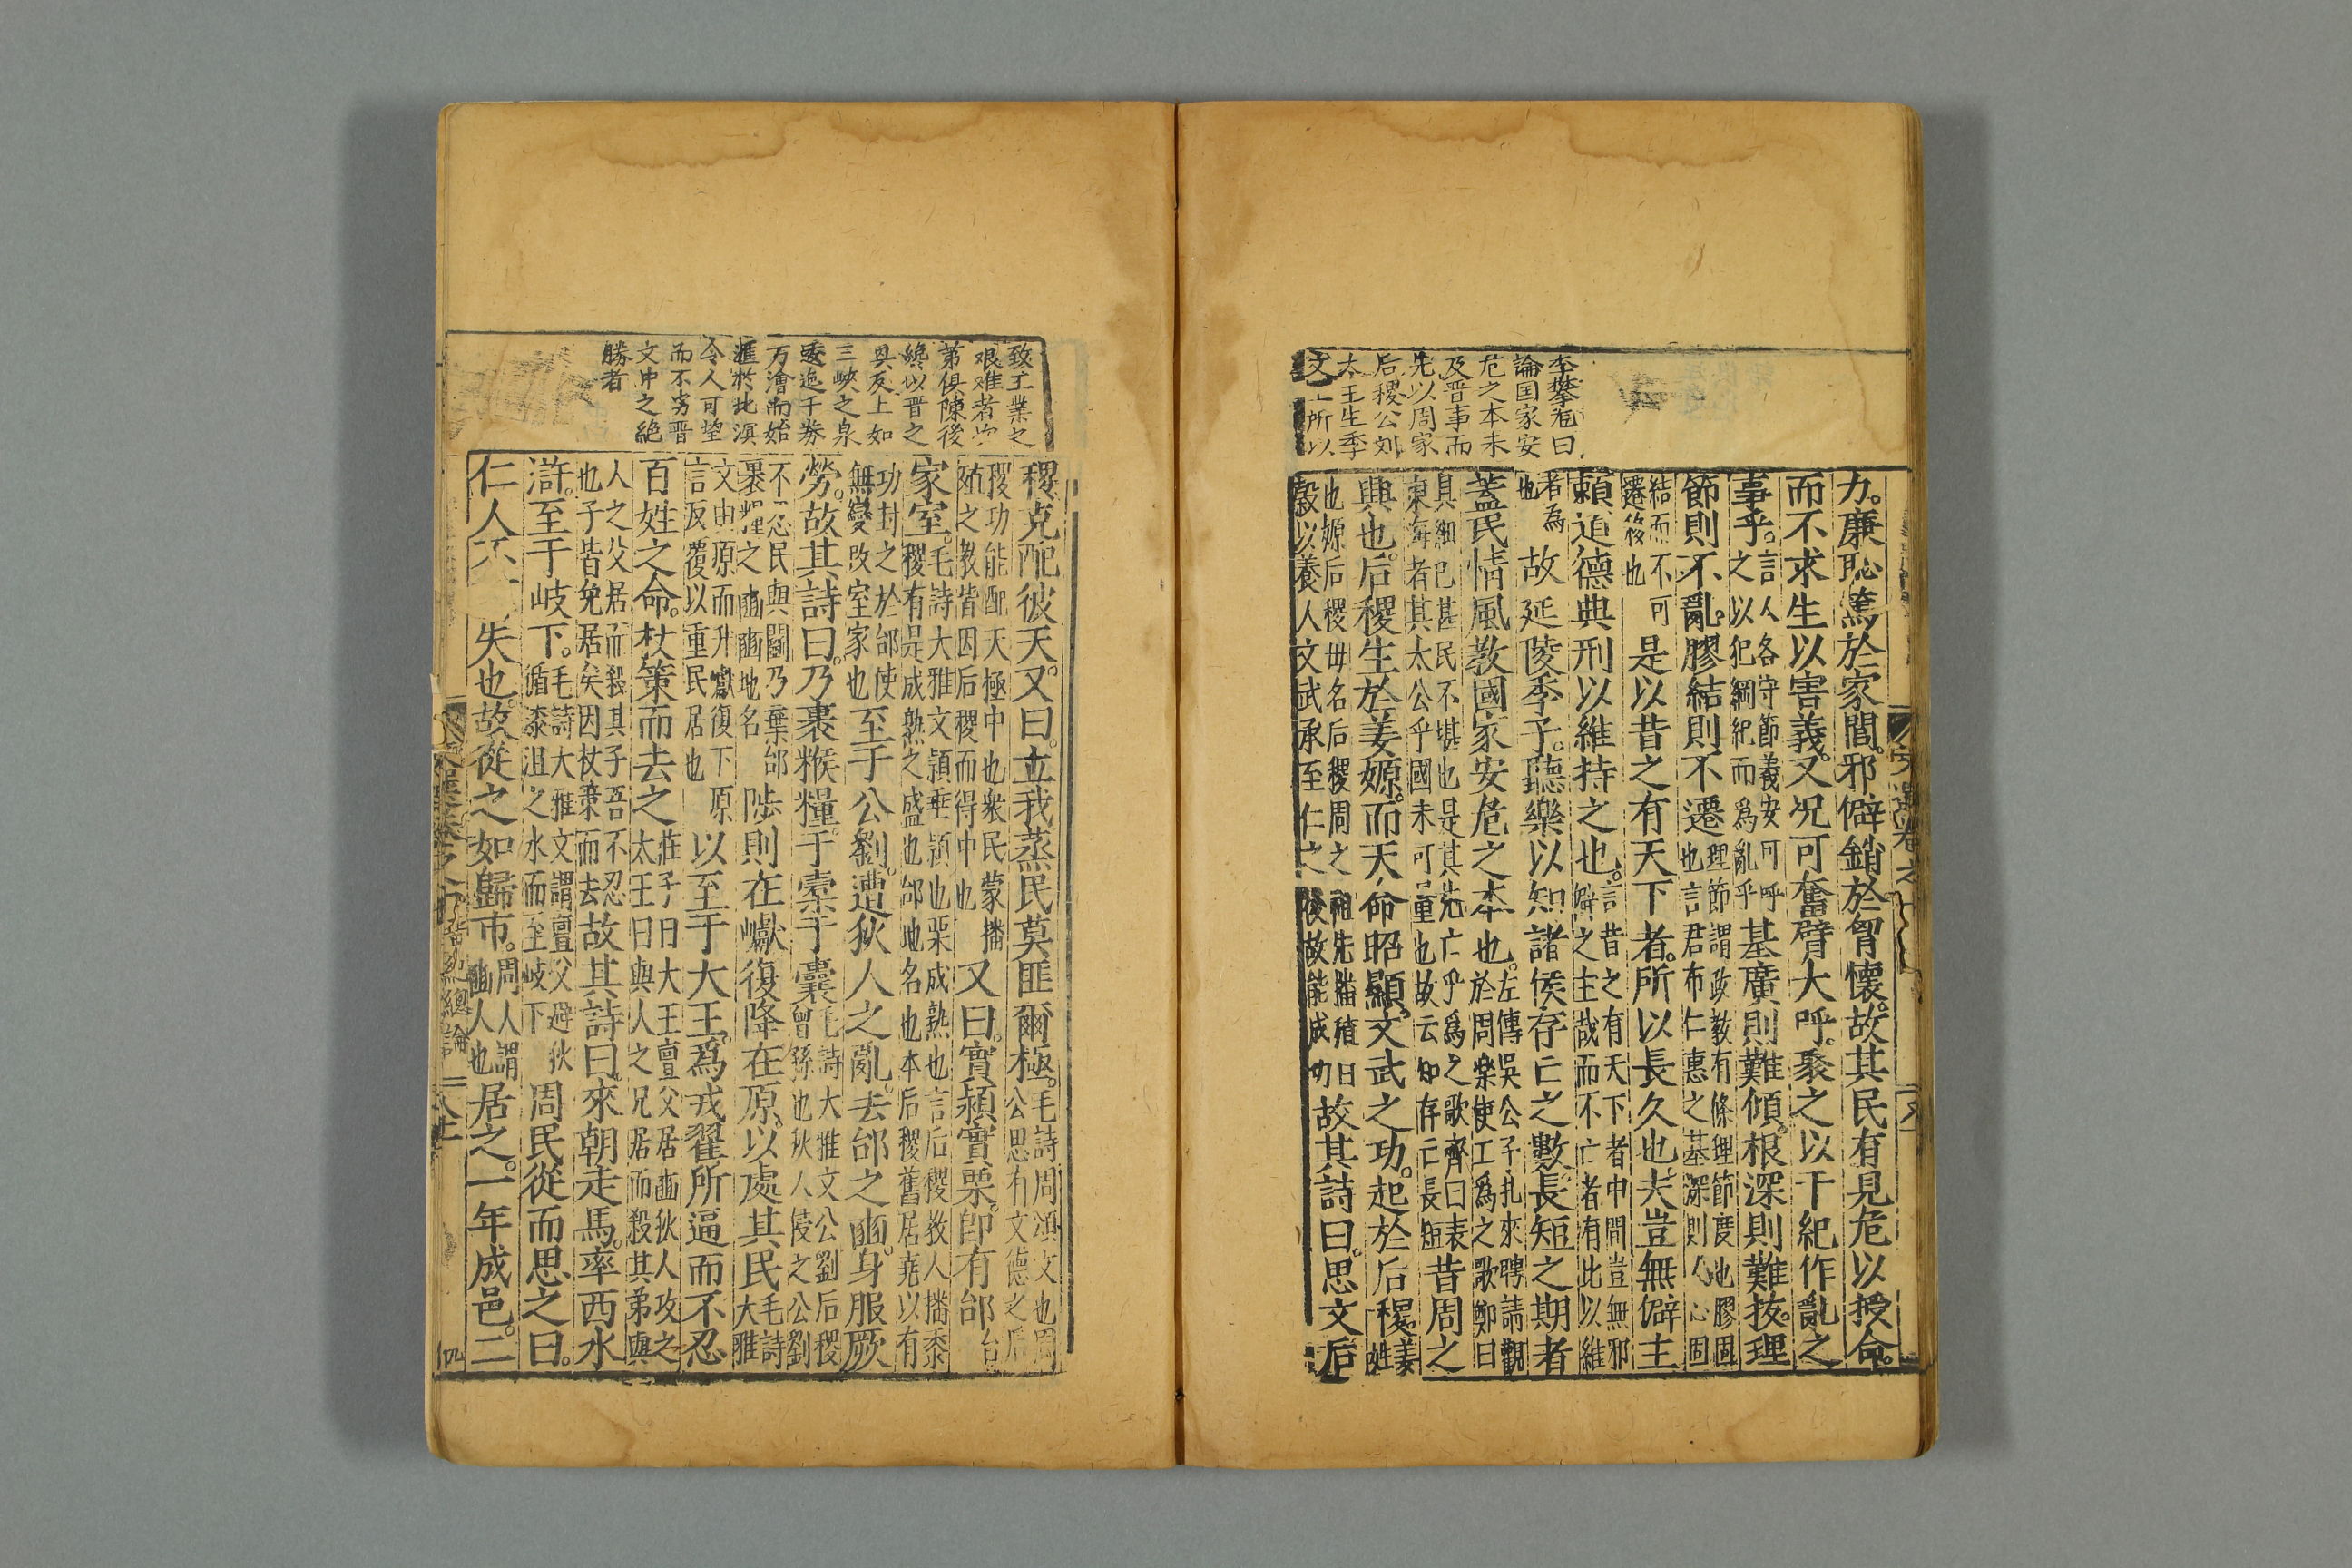 李攀龍曰
論国家安
危之本末
及晋事而
先以周家
后稷公刘
太王生季
文 所以
力。廉恥篤於家閭。邪僻銷於胷懷。故其民有見危以授命。
而不求生以害義。又况可奮臂大呼。聚之以干紀作亂之
事乎。言人各守節義安可呼之以犯綱紀而爲亂乎基廣則難傾。根深則難拔。理
節則不亂。膠結則不遷。理節謂政教有條理節度也膠固也言君布仁惠之基深則人心固
結而不可遷移也是以昔之有天下者。所以長久也。夫豈無僻主
賴道德典刑以維持之也。言昔之有天下者中間豈無邪僻之主哉而不亡者有此以維
者為也故延陵季子。聽樂以知諸侯存亡之數。長短之期者
蓋民情風教。國家安危之本也。左傳吳公子扎來聘請觀於周樂使工爲之歌鄭曰
其細已甚民不堪也是其先亡乎爲之歌齊曰表東海者其太公乎國未可量也故云知存亡長短昔周之
興也。后稷生於姜嫄。而天命昭顯。文武之功。起於后稷。姜姓
也嫄后稷毋名后稷周之祖先播殖百穀以養人文武承至仁之後故能成功故其詩曰。思文后
致王業之
艰难者
第俱陳後
總以晋之
興反上如
三峽之泉
委迤千券
万澮而始
滙於此溟
令人可望
而不穷晋
文中之絶
勝者
稷。克配彼天。又曰。立我蒸民莫匪爾極。毛詩周頌文也周公思有文德之后
稷功能配天極中也衆民蒙播殖之教皆因后稷而得中也又曰。實穎實栗。卽有邰家室。毛詩大雅文穎垂穎也栗成熟也言后稷教人播黍稷有是成熟之盛也邰地名也本后稷舊居堯以有
功封之於邰使無變改室家也至于公劉。遭狄人之亂。去邰之豳。身服厥
勞。故其詩曰。乃裹糇糧。于橐于囊毛詩大雅文公劉后稷曾孫也狄人侵之公劉
不忍民與鬭乃棄邰裹粮之豳豳地名陟則在巘。復降在原。以處其民毛詩大雅
文由原而升巘復下原言反覆以重民居也以至于大王。爲戎翟所逼而不忍
百姓之命。杖策而去之莊子曰大王亶父居豳狄人攻之太王曰與人之兄居而殺其弟與
人之父居而殺其子吾不忍也子皆免居矣因杖策而去故其詩曰。來朝走馬。率西水
滸。至于岐下。毛詩大雅文謂亶父避狄循漆沮之水而至岐下周民從而思之曰。
仁人不 失也。故從之如歸市。周人謂豳人也居之。一年成邑。二